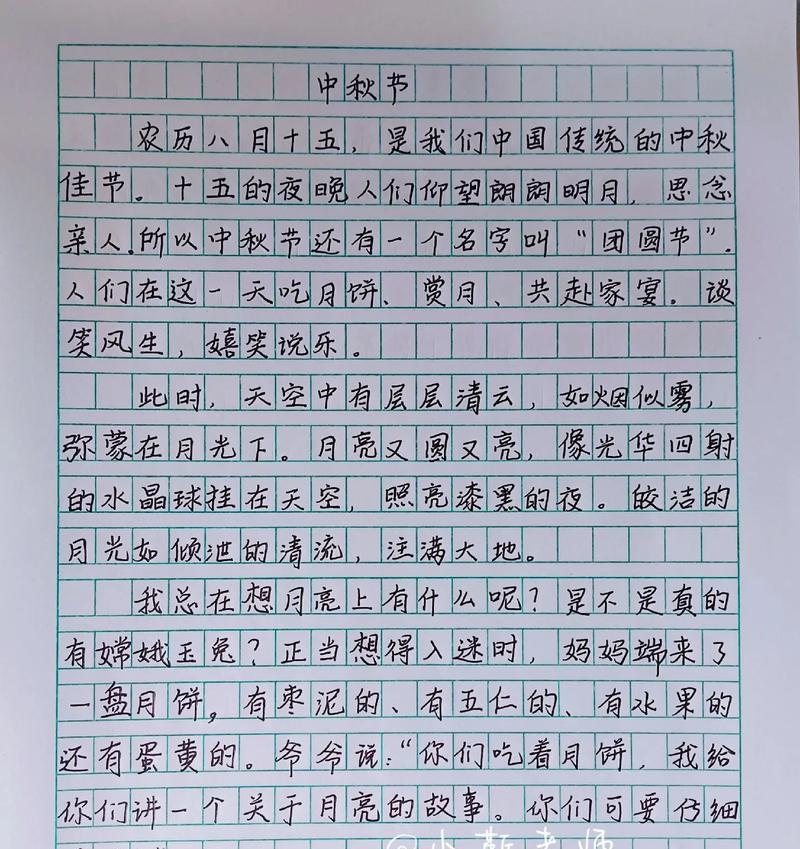 中秋节
农历八月十五，是我们中国传统的中秋
佳节。十五的夜晚人们仰望朗朗明月，思念
亲人.所以中秋节还有一个名字叫“团圆节”.
人们在这一天吃月饼、赏月、共赴家宴。谈
笑风生，嬉笑说乐。
此时，天空中有层层清云，如烟似雾，
弥蒙在月光下。月亮又圆又亮，像光华四射
的水晶球挂在天空，照亮漆黑的夜。皎洁的
月光如倾泄的清流，注满大地。
我总在想月亮上有什么呢？是不是真的
有嫦娥玉兔？正当想得入迷时，妈妈端来了
一盘月饼，有枣泥的、有五仁的、有水果的
还有蛋黄的。爷爷说：“你们吃着月饼，我给
你们讲一个关于月亮的故事。你们可要仔细
@小靳老师